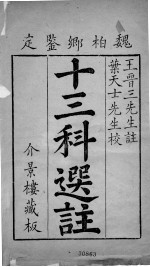 魏柏鄉鑒定
王晉三先生註
葉天士先生校
十三科選註
介景樓藏板
30863